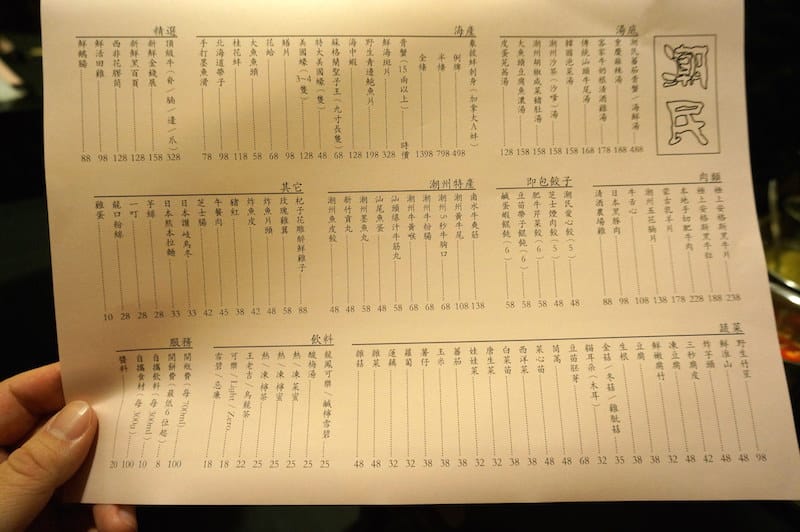 潮民
湯底
潮民蕃茄青蟹/海鮮湯 488
重慶麻辣湯 188
客家牛奶根清酒雞湯 178
傳統汕頭牛尾湯 168
韓國泡菜湯 158
潮州沙茶(沙嗲)湯 158
潮州胡椒咸菜豬肚湯 158
大魚頭豆腐魚濃湯 158
皮蛋芫茜湯 128
海產
象拔蚌刺身(加拿大A蚌)
例牌 498
半條 798
全條 1398
青蟹(15両以上) 時價
鮮海斑片 328
野生青邊鮑魚片 198
海中蝦 128
蘇格蘭聖子王(九寸長隻) 68
特大美國蠔(隻) 48
美國蠔(3~4隻) 128
鱔片 98
花蛤 68
大魚魚頭 58
桂花蚌 118
北海道帶子 98
手打墨魚滑 78
精選
頂級牛(脊/𦟌/邊/爪) 328
新鮮金錢展 158
新鮮黑百頁 128
西非花膠筒 128
鮮活田雞 98
鮮鵝腸 88
肉類
極上安格斯黑牛片 238
極上安格斯黑牛粒 188
本地手切肥牛肉 228
蒙古羔羊片 178
潮州五花腩片 138
牛舌心 108
日本黑豚肉 98
清酒農場雞 88
即包餃子
潮民愛心餃(5) 48
芝士煙肉餃(5) 48
肥牛芹菜餃(6) 58
豆苗帶子餛飩(6) 58
鹹蛋蝦餛飩(6) 58
潮州特產
鹵水牛爽筋 138
潮州黃牛尾 108
潮州5秒牛胸口 68
潮州牛粉腸 68
潮州牛黃喉 68
汕頭爆汁牛筋丸 58
汕尾魚蛋 58
潮州墨魚丸 58
新竹貢丸 48
潮州魚皮餃 48
其它
杞子花雕醉鮮雞子 88
玫瑰雞翼 58
炸魚片頭 48
炸魚皮 42
豬紅 38
午餐肉 45
芝士腸 42
日本讚岐烏冬 33
日本熊本拉麵 33
芋絲 28
一叮 28
龍口粉絲 28
雞蛋 10
蔬菜
野生竹笙 98
鮮淮山 48
炸芋頭 48
三秒腐皮 42
凍豆腐 48
鮮嫩腐竹 48
豆腐 32
生根 38
金菇/冬菇/雞髀菇 32
貓耳朵(木耳) 35
豆苗胚芽 68
茼萵 48
菜心苗 38
西洋菜 38
白菜苗 32
唐生菜 32
娃娃菜 38
蕃茄 32
玉米 38
薯仔 38
蘿蔔 32
蓮藕 32
雞菜 48
雞菇 48
飲料
龍鳳可樂/鹹檸雪碧 25
酸梅湯 25
熱/凍菜蜜 25
熱/凍檸蜜 25
熱/凍檸茶 25
王老吉/烏龍茶 22
可樂/Light/Zero 18
雪碧/忌廉 18
服務
開瓶費(每700ml) 100
開餅費(最低6位起) 8
自攜飲料(每300ml) 10
自攜食材(每300g) 100
醬料 20